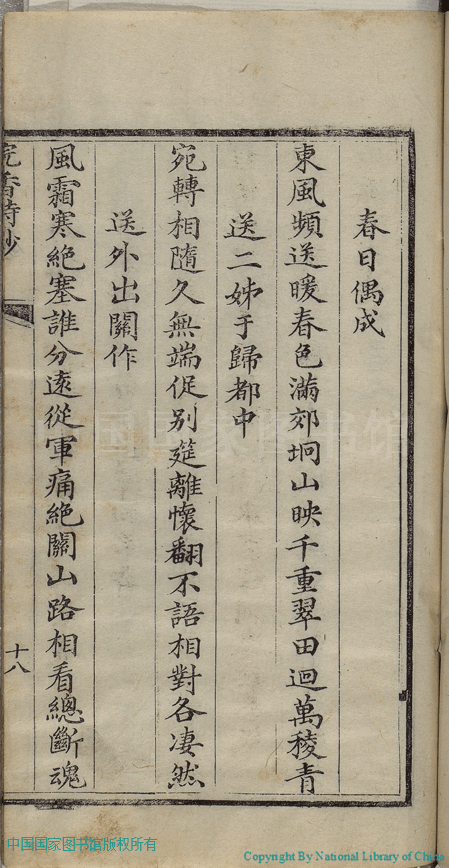 春日偶成
東風頻送暖春色滿郊坰山映千重翠田迴萬稜青
送二姊于歸都中
宛轉相隨久無端促别筵離懷翻不語相對各凄然
送外出關作
風霜寒絶塞誰分逺從軍痛絶關山路相看總斷魂
香詩鈔
十八
中国国家图书馆版权所有
Copyright By National Library of China